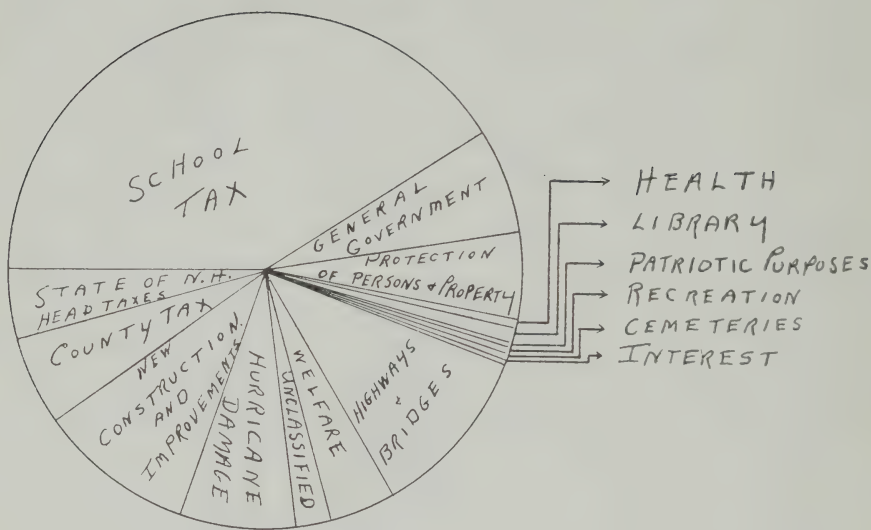 SCHOOL
TAX
GENERAL
GOVERNMENT
PROTECTION
OF PERSONS & PROPERTY
HEALTH
LIBRARY
PATRIOTIC PURPOSES
RECREATION
CEMETERIES
INTEREST
HIGHWAYS
&
BRIDGES
WELFARE
UNCLASSIFIED
HURRICANE
DAMAGE
NEW
CONSTRUCTION
AND
IMPROVEMENTS
COUNTY TAX
STATE OF N.H.
HEAD TAXES